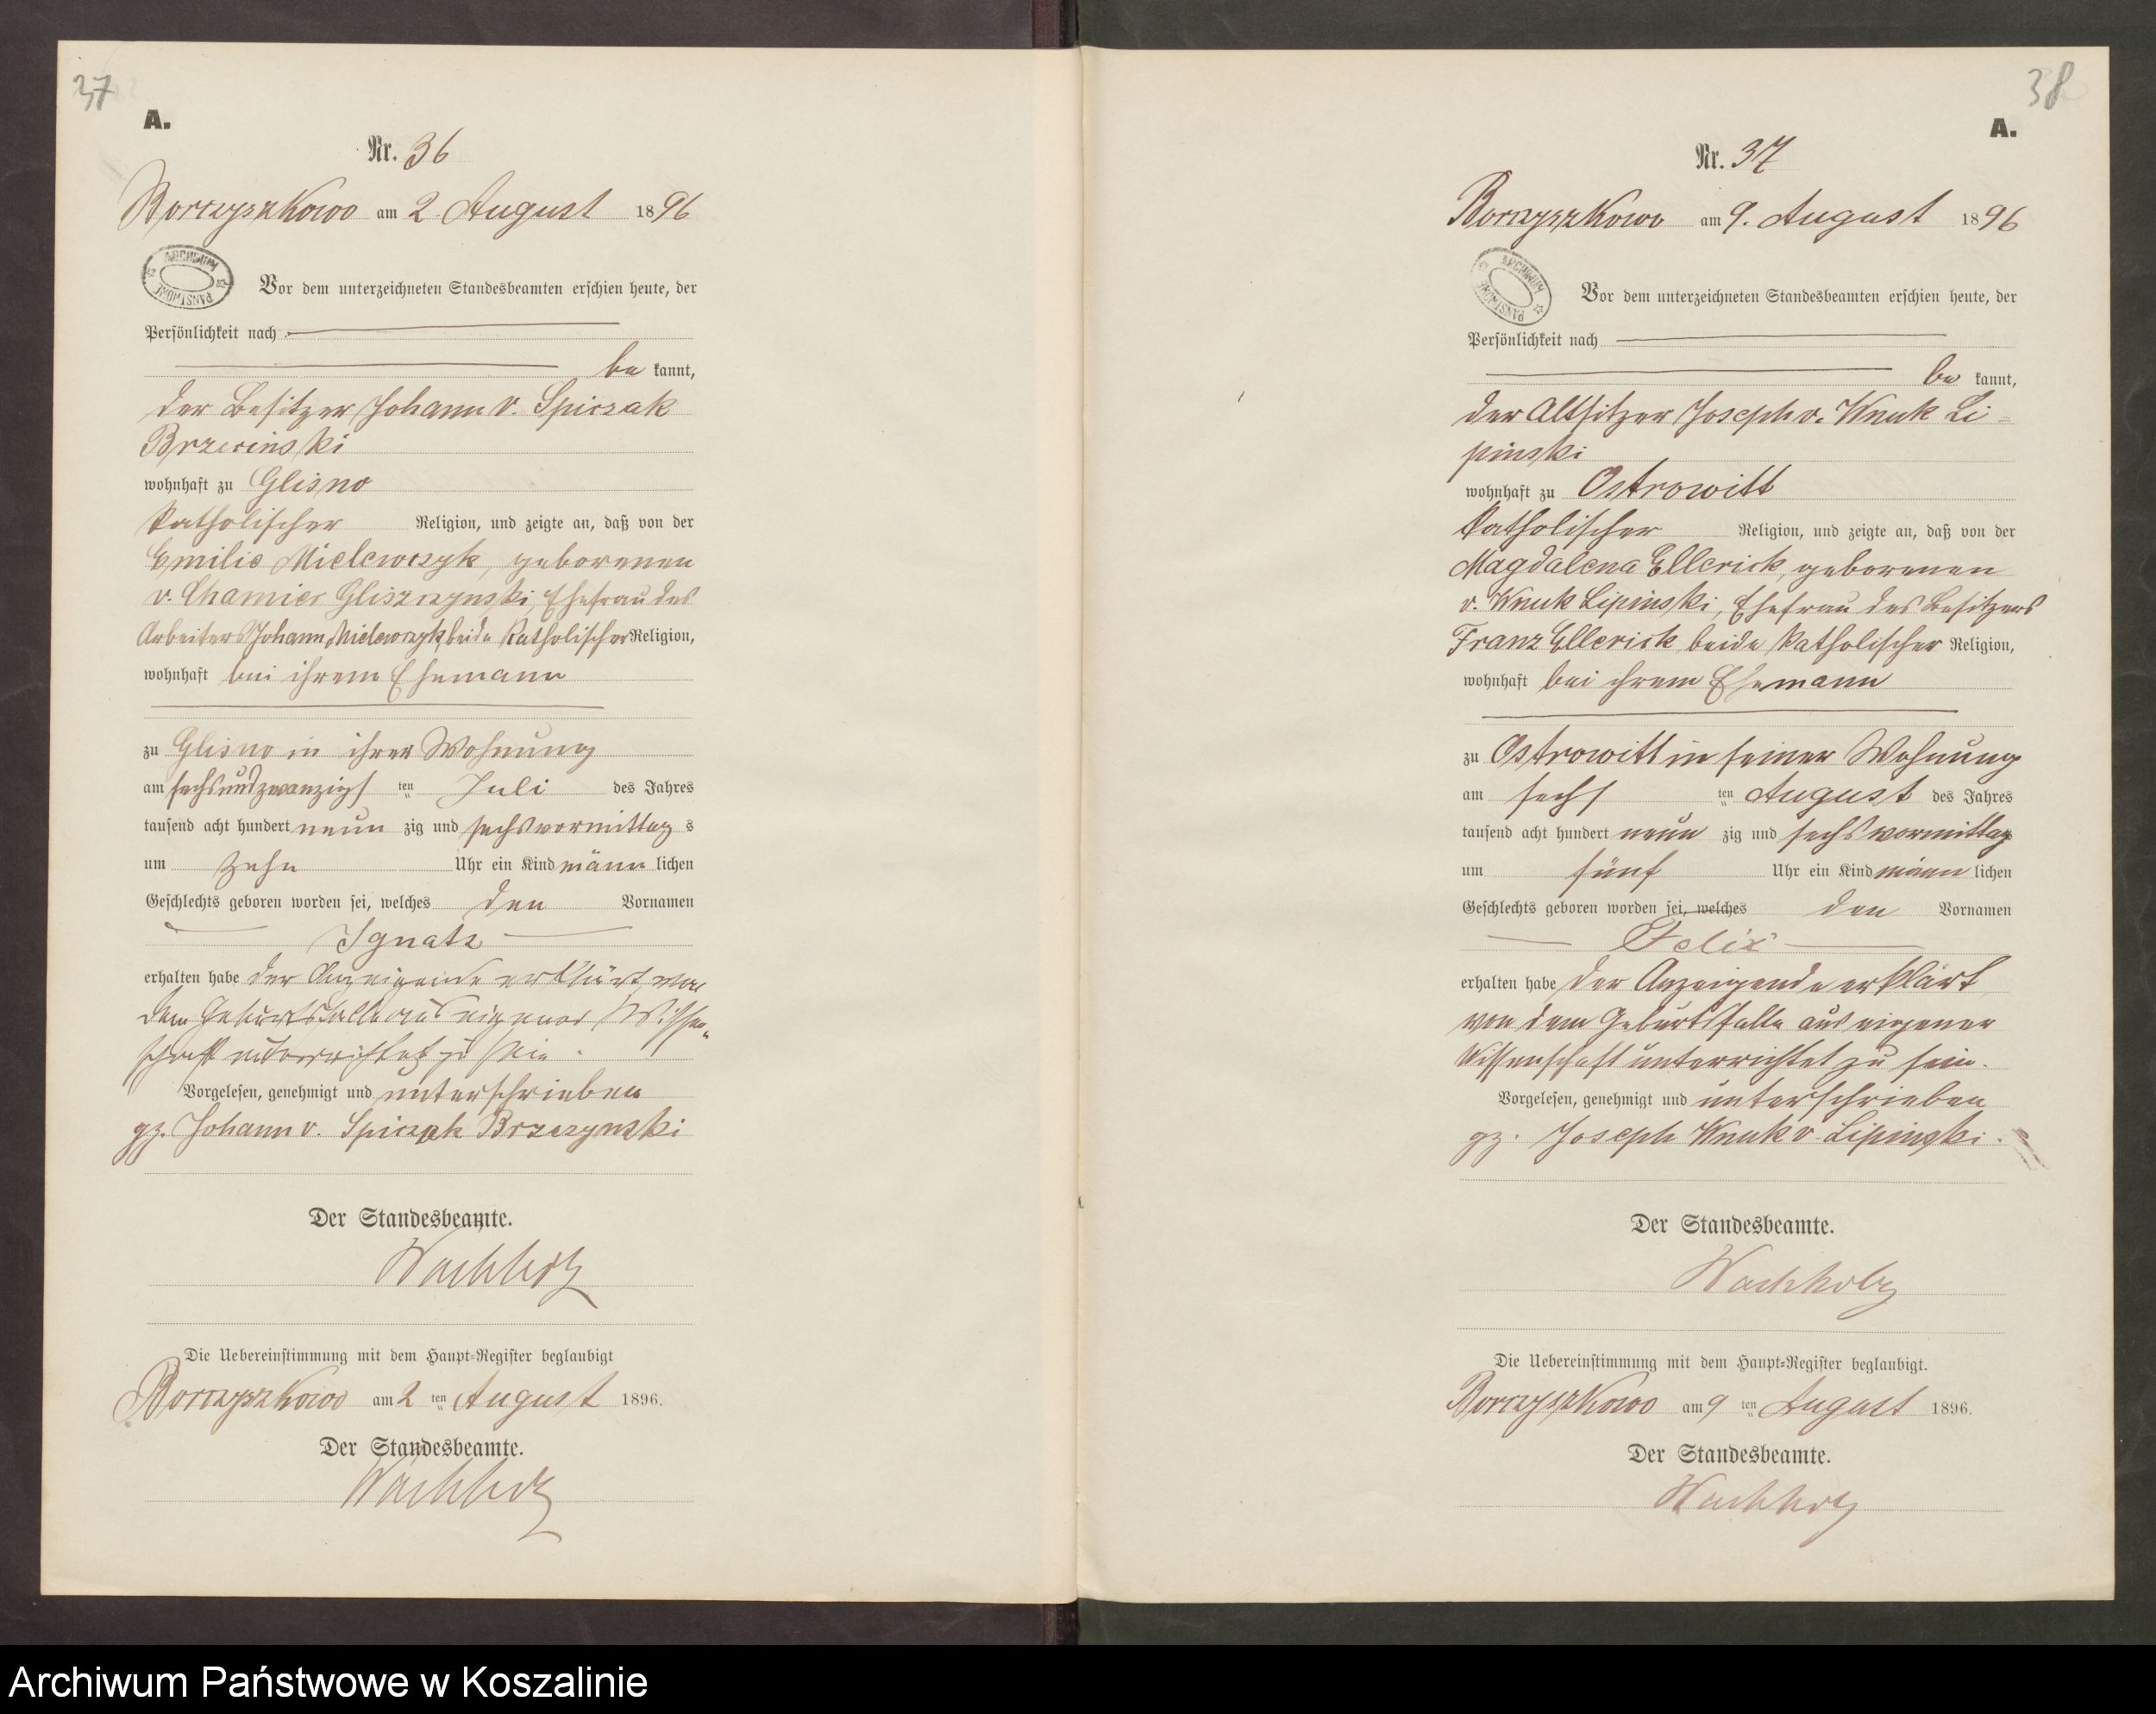 37
A.
Nr. 36
Borczyszkowo am 2 August 1896
ARCHIWUM PAŃSTWOWE
Vor dem unterzeichneten Standesbeamten erschien heute, der
Persönlichkeit nach
be kannt,
der Besitzer Johann v. Spiczak
Brzezinski
wohnhaft zu Glisno
katholischer Religion, und zeigte an, daß von der
Emilie Mielewczyk, geborenen
v. Chamier Gliszczynski, Ehefrau des
Arbeiters Johann Mielewczyk, beide katholischer Religion,
wohnhaft bei ihrem Ehemann
zu Glisno in ihrer Wohnung
am sechsundzwanzigs ten Juli des Jahres
tausend acht hundert neun zig und sechs vormittag s
um zehn Uhr ein Kind männ lichen
Geschlechts geboren worden sei, welches den Vornamen
Ignatz
erhalten habe der Anzeigende erklärt, von
dem Geburtsfalle aus eigener Wissen-
schaft unterrichtet zu sein.
Vorgelesen, genehmigt und unterschrieben
gz. Johann v. Spiczak Brzezynski
Der Standesbeamte.
Wachholz
Die Uebereinstimmung mit dem Haupt-Register beglaubigt
Borczyszkowo am 2 ten August 1896.
Der Standesbeamte.
Wachholz
38
A.
Nr. 37
Borczyszkowo am 9. August 1896
ARCHIWUM PAŃSTWOWE
Vor dem unterzeichneten Standesbeamten erschien heute, der
Persönlichkeit nach
be kannt,
der Altsitzer Joseph v. Wnuk Li-
pinski
wohnhaft zu Ostrowitt
katholischer Religion, und zeigte an, daß von der
Magdalena Ellerick, geborenen
v. Wnuk Lipinski, Ehefrau des Besitzers
Franz Ellerick beide katholischer Religion,
wohnhaft bei ihrem Ehemann
zu Ostrowitt in seiner Wohnung
am sechs ten August des Jahres
tausend acht hundert neun zig und sechs vormittag
um fünf Uhr ein Kind männ lichen
Geschlechts geboren worden sei, welches den Vornamen
Felix
erhalten habe der Anzeigende erklärt
von dem Geburtsfalle aus eigener
Wissenschaft unterrichtet zu sein.
Vorgelesen, genehmigt und unterschrieben
gz. Joseph Wnuk v. Lipinski.
Der Standesbeamte.
Wachholz
Die Uebereinstimmung mit dem Haupt-Register beglaubigt.
Borczyszkowo am 9 ten August 1896.
Der Standesbeamte.
Wachholz
Archiwum Państwowe w Koszalinie